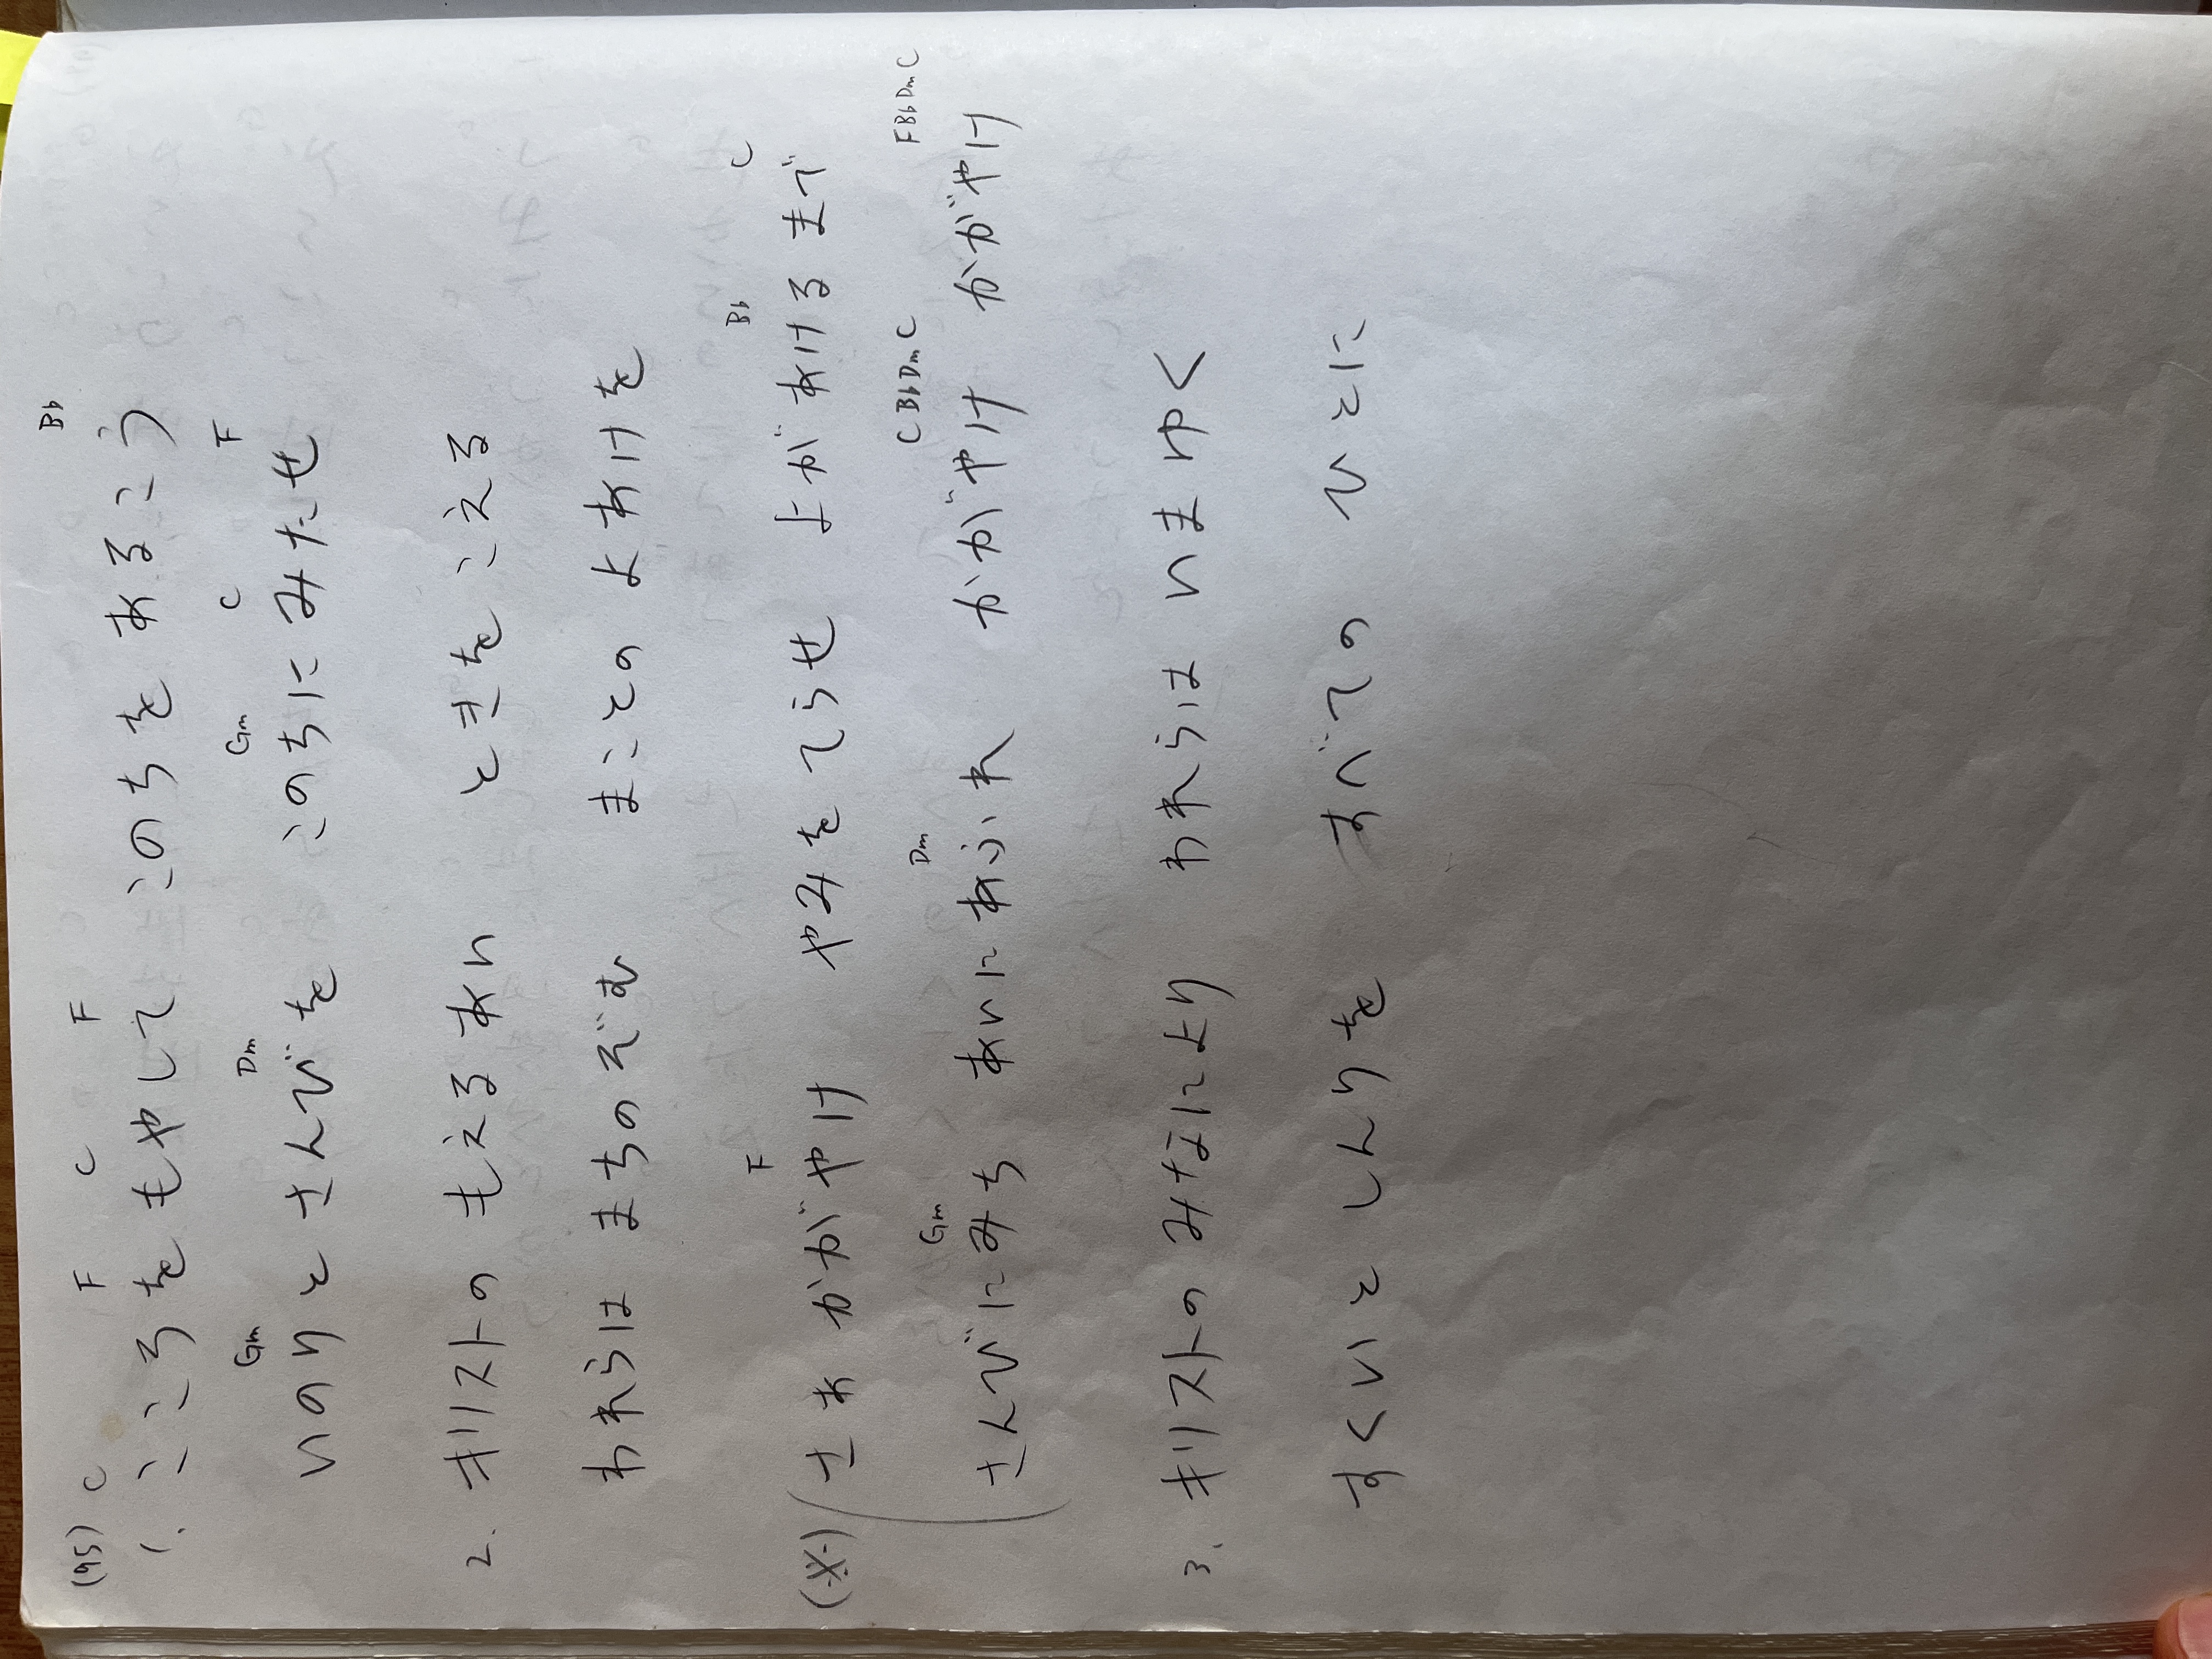 (95)
C F C F Bb
1. こころをもやして このちを あるこう
Gm Dm Gm C F
いのりと さんびを このちに みたせ
2. キリストの もえるあい ときを こえる
われらは まちのぞむ まことの よあけを
F Bb C
(※) さあ かがやけ やみをてらせ よが あけるまで
Gm Dm CBbDmC FBbDmC
さんびにみち あいにあふれ かがやけ かがやけ
3. キリストの みなにより われらは いまゆく
すくいと しんりを すべての ひとに